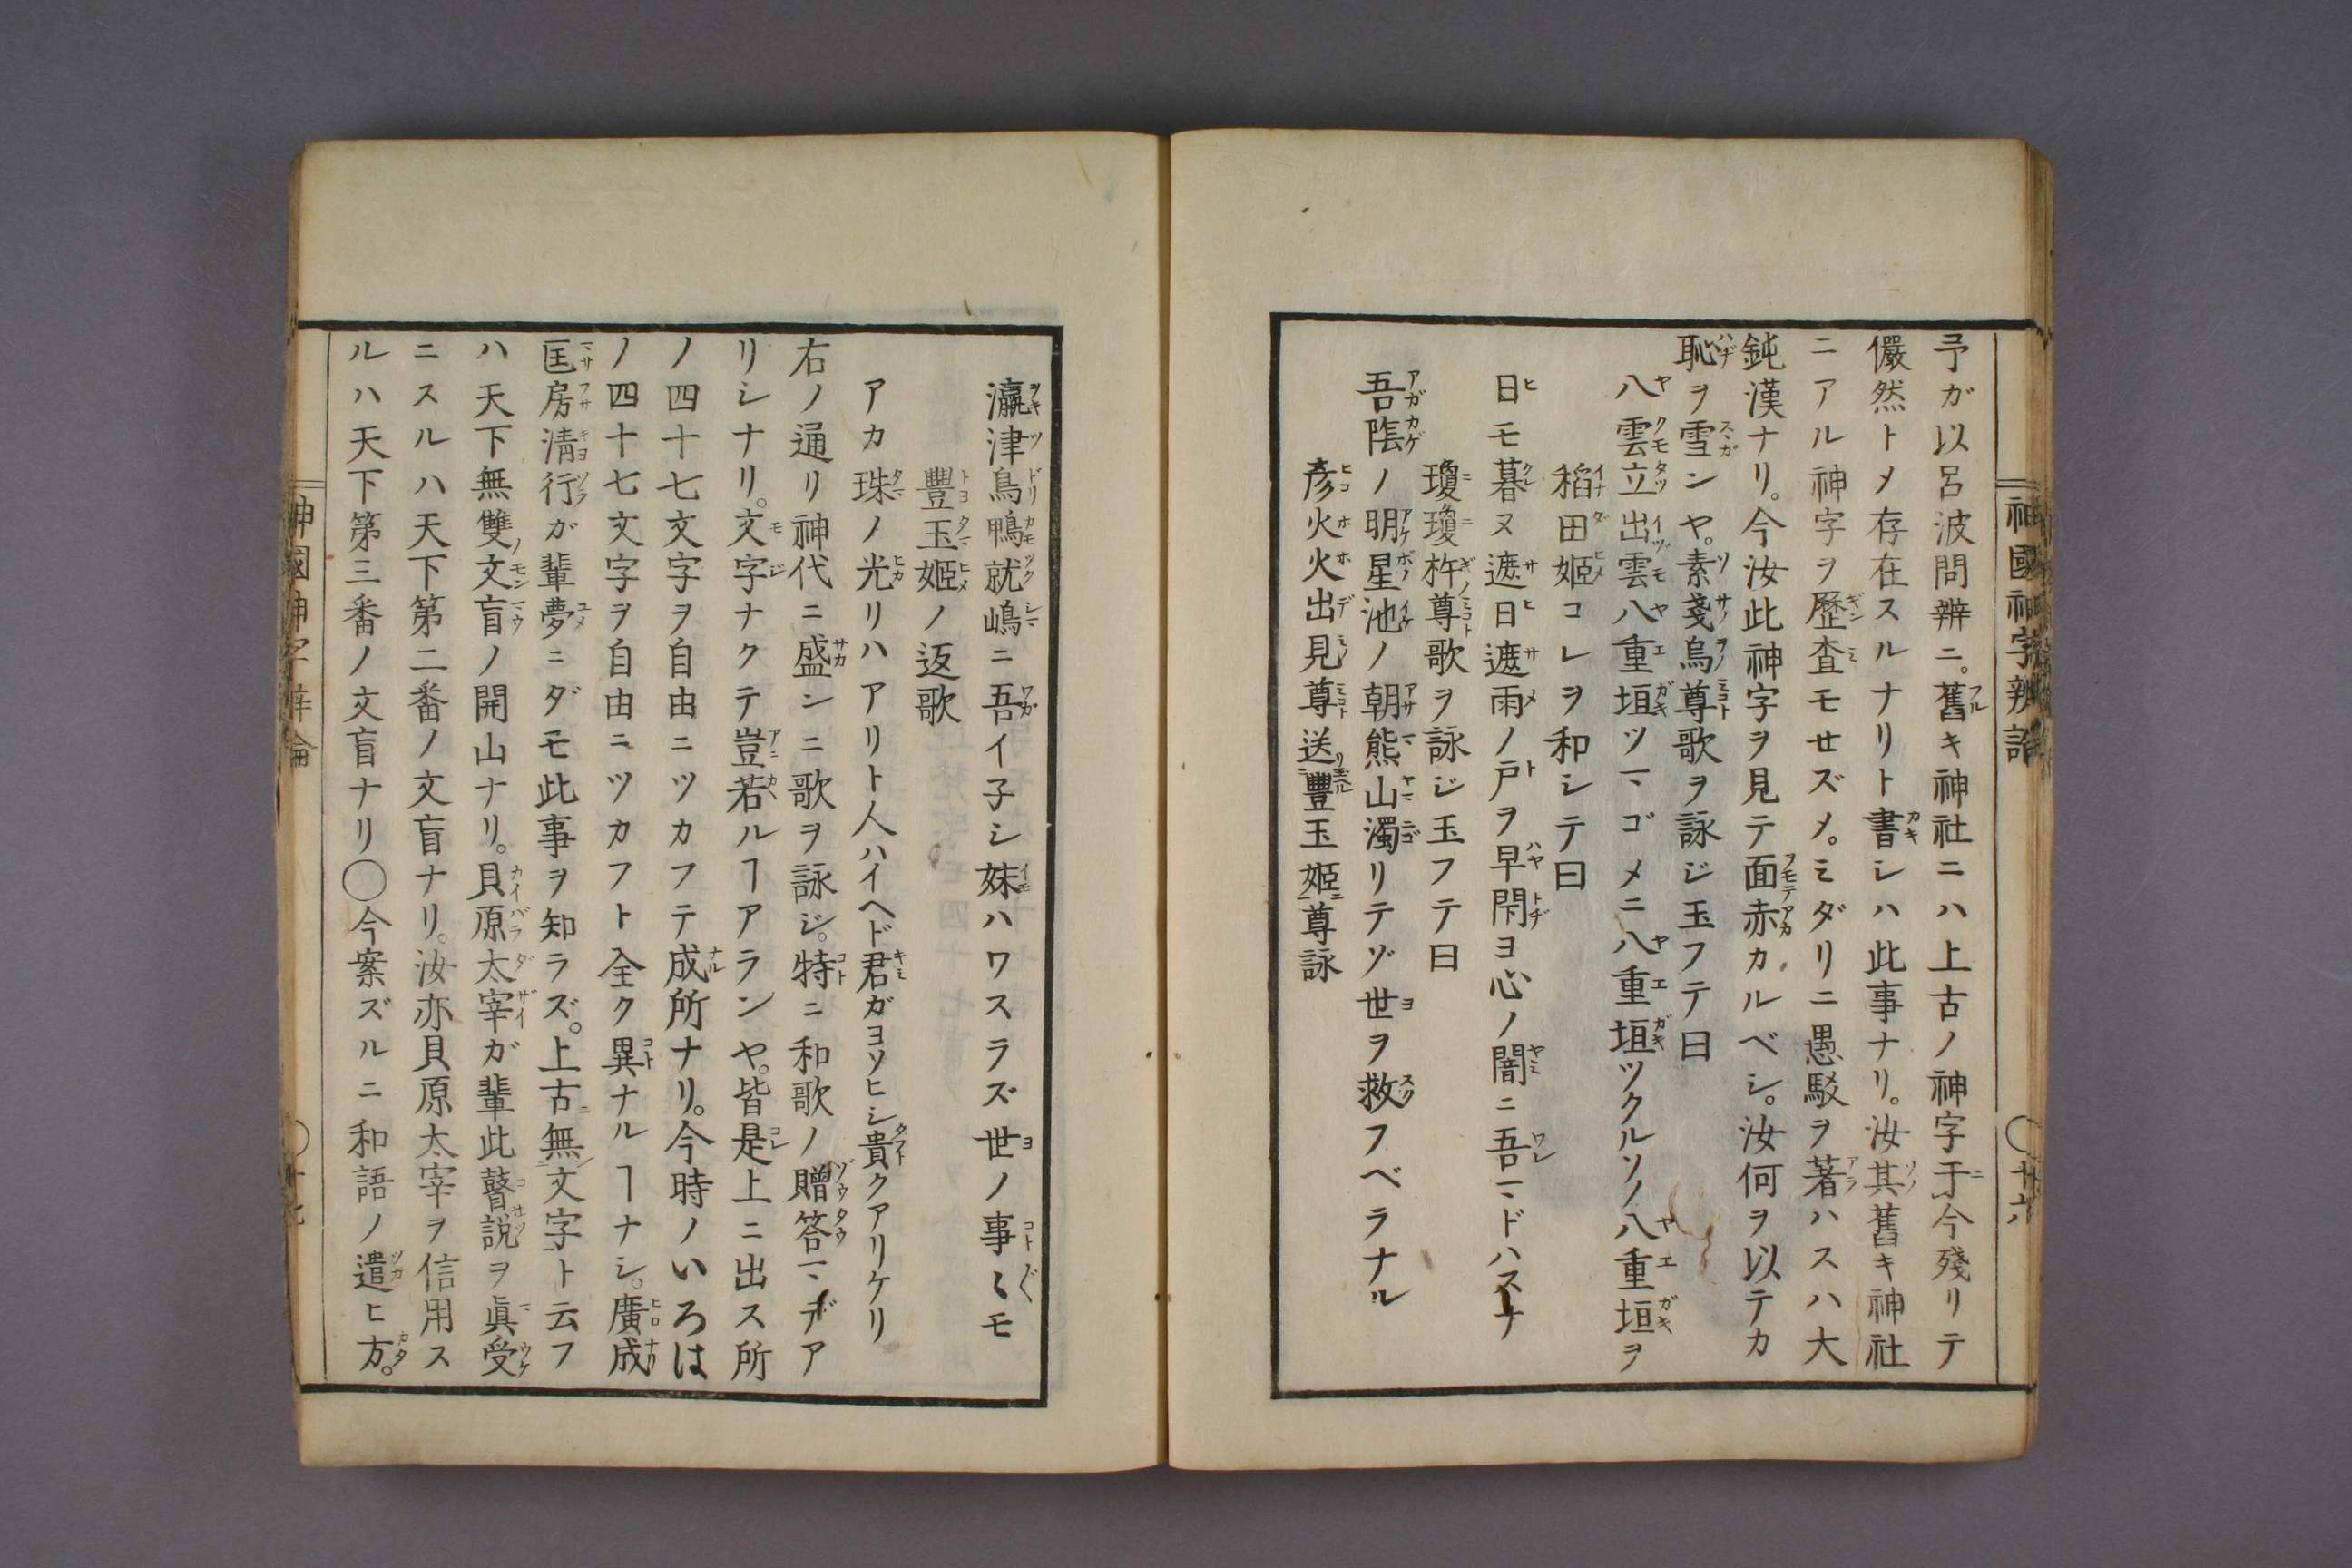 神國神字辨論
〇十六
予ガ以呂波問辨ニ。舊キ神社ニハ上古ノ神字于今殘リテ
儼然トメ存在スルナリト書シハ此事ナリ。汝其舊キ神社
ニアル神字ヲ歷査モセズメ。ミダリニ愚駁ヲ著ハスハ大
鈍漢ナリ。今汝此神字ヲ見テ面赤カルベシ。汝何ヲ以テカ
恥ヲ雪ンヤ。素戔烏尊歌ヲ詠ジ玉フテ曰
八雲立出雲八重垣ツマゴメニ八重垣ツクルソノ八重垣ヲ
稻田姬コレヲ和シテ曰
日モ暮ヌ遮日遮雨ノ戸ヲ早閇ヨ心ノ闇ニ吾マドハスナ
瓊瓊杵尊歌ヲ詠ジ玉フテ曰
吾陰ノ明星池ノ朝熊山濁リテゾ世ヲ救フベラナル
彥火火出見尊送豐玉姬尊詠
瀛津鳥鴨就嶋ニ吾イ子シ妹ハワスラズ世ノ事〻モ
豐玉姬ノ返歌
アカ珠ノ光リハアリト人ハイヘド君ガヨソヒシ貴クアリケリ
右ノ通リ神代ニ盛ンニ歌ヲ詠ジ。特ニ和歌ノ贈答マデア
リシナリ。文字ナクテ豈若ルヿアランヤ。皆是上ニ出ス所
ノ四十七文字ヲ自由ニツカフテ成所ナリ。今時ノいろは
ノ四十七文字ヲ自由ニツカフト全ク異ナルヿナシ。廣成
匡房淸行ガ輩夢ニダモ此事ヲ知ラズ。上古無文字ト云フ
ハ天下無雙ノ文盲ノ開山ナリ。貝原太宰ガ輩此瞽説ヲ眞受
ニスルハ天下第二番ノ文盲ナリ。汝亦貝原太宰ヲ信用ス
ルハ天下第三番ノ文盲ナリ〇今案ズルニ和語ノ遣ヒ方。
神國神字辨論
〇十七